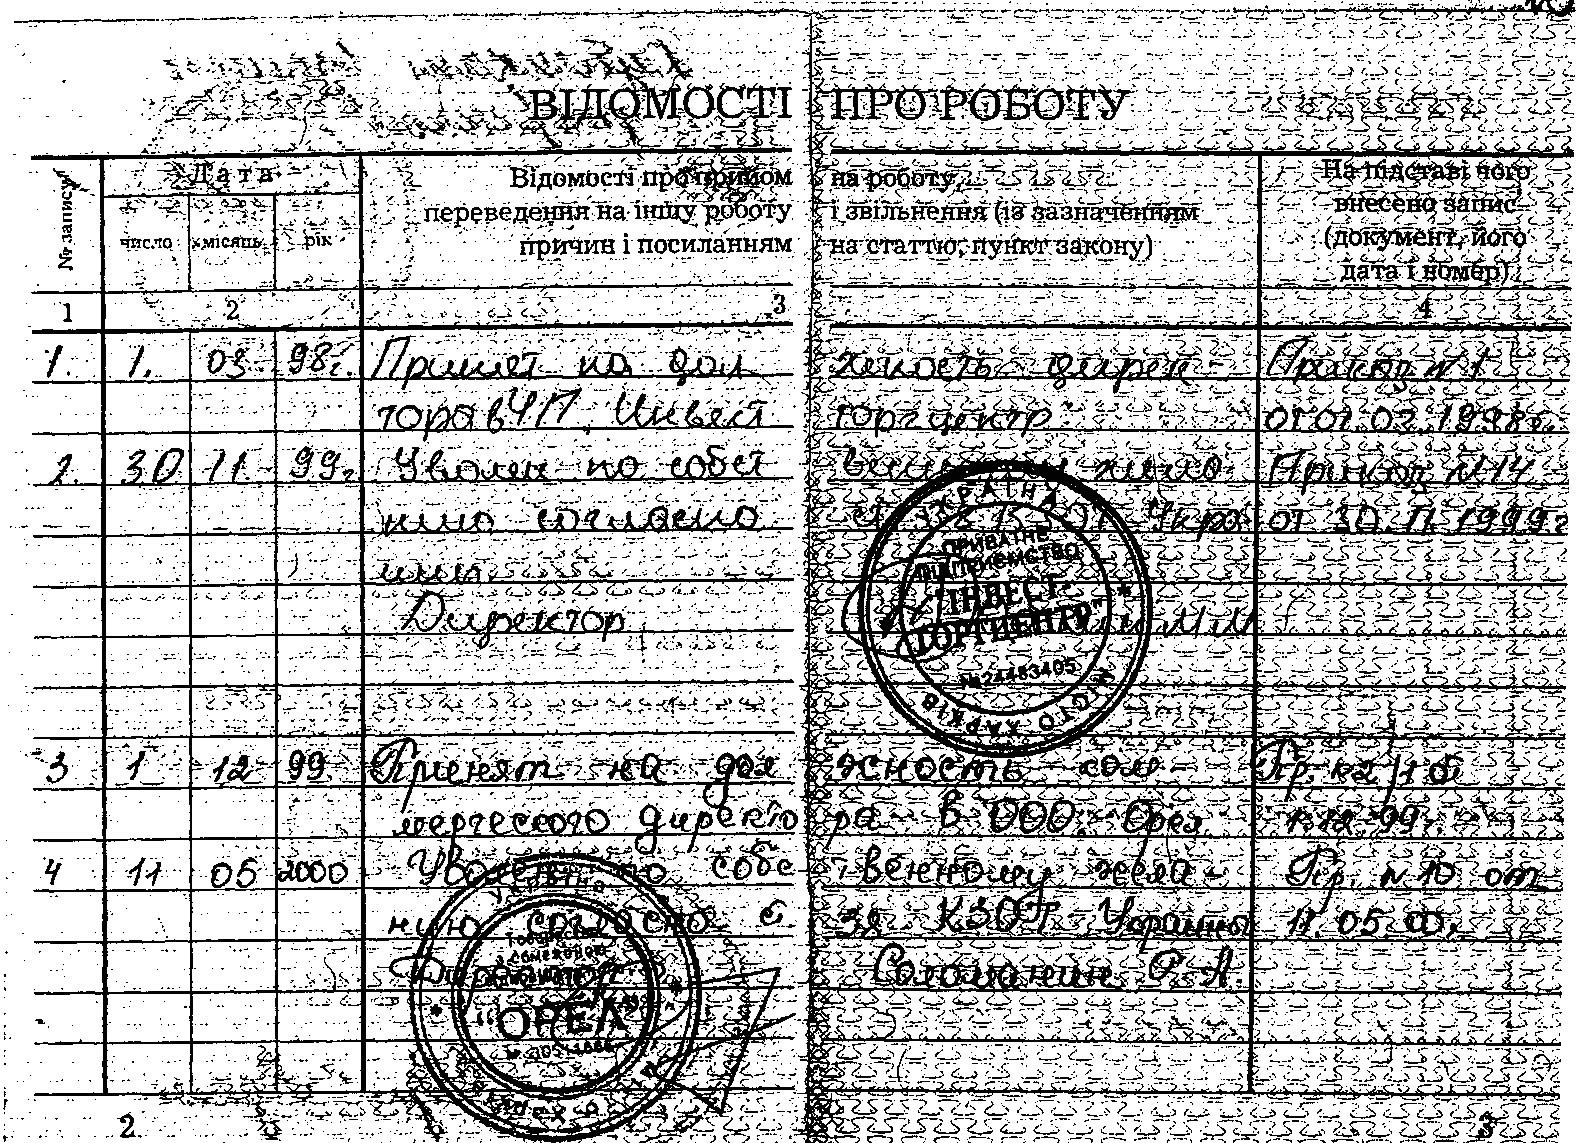 ВІДОМОСТІ ПРО РОБОТУ
№ запису
Дата
число місяць рік
Відомості про прийом на роботу,
переведення на іншу роботу і звільнення (із зазначенням
причин і посиланням на статтю, пункт закону)
На підставі чого
внесено запис
(документ, його
дата і номер)
1 2 3 4
1. 1. 03 98г. Принят на дол жность дирек- Приказ №1
тора в ЧП "Инвест торгцентр" от 01.03.1998г.
2. 30 11 99г. Уволен по собст венному жела- Приказ №14
нию согласно ст. 38 КЗОТ Укра от 30.11.1999г
ины.
Директор
УКРАЇНА
ПРИВАТНЕ
ПІДПРИЄМСТВО
"ІНВЕСТ-
ТОРГЦЕНТР"
№24483405
МІСТО ХАРКІВ
3 1 12 99 Принят на дол жность ком- Пр. к2/1 б
мерческого директо ра в ООО "Орел 1.12.99г.
4 11 05 2000 Уволен по собс твенному жела- Пр. №10 от
нию согласно с 38 КЗОТ Украины 11.05.00.
Директор Соломонник Р.А.
УКРАЇНА
"ОРЕЛ"
2
3